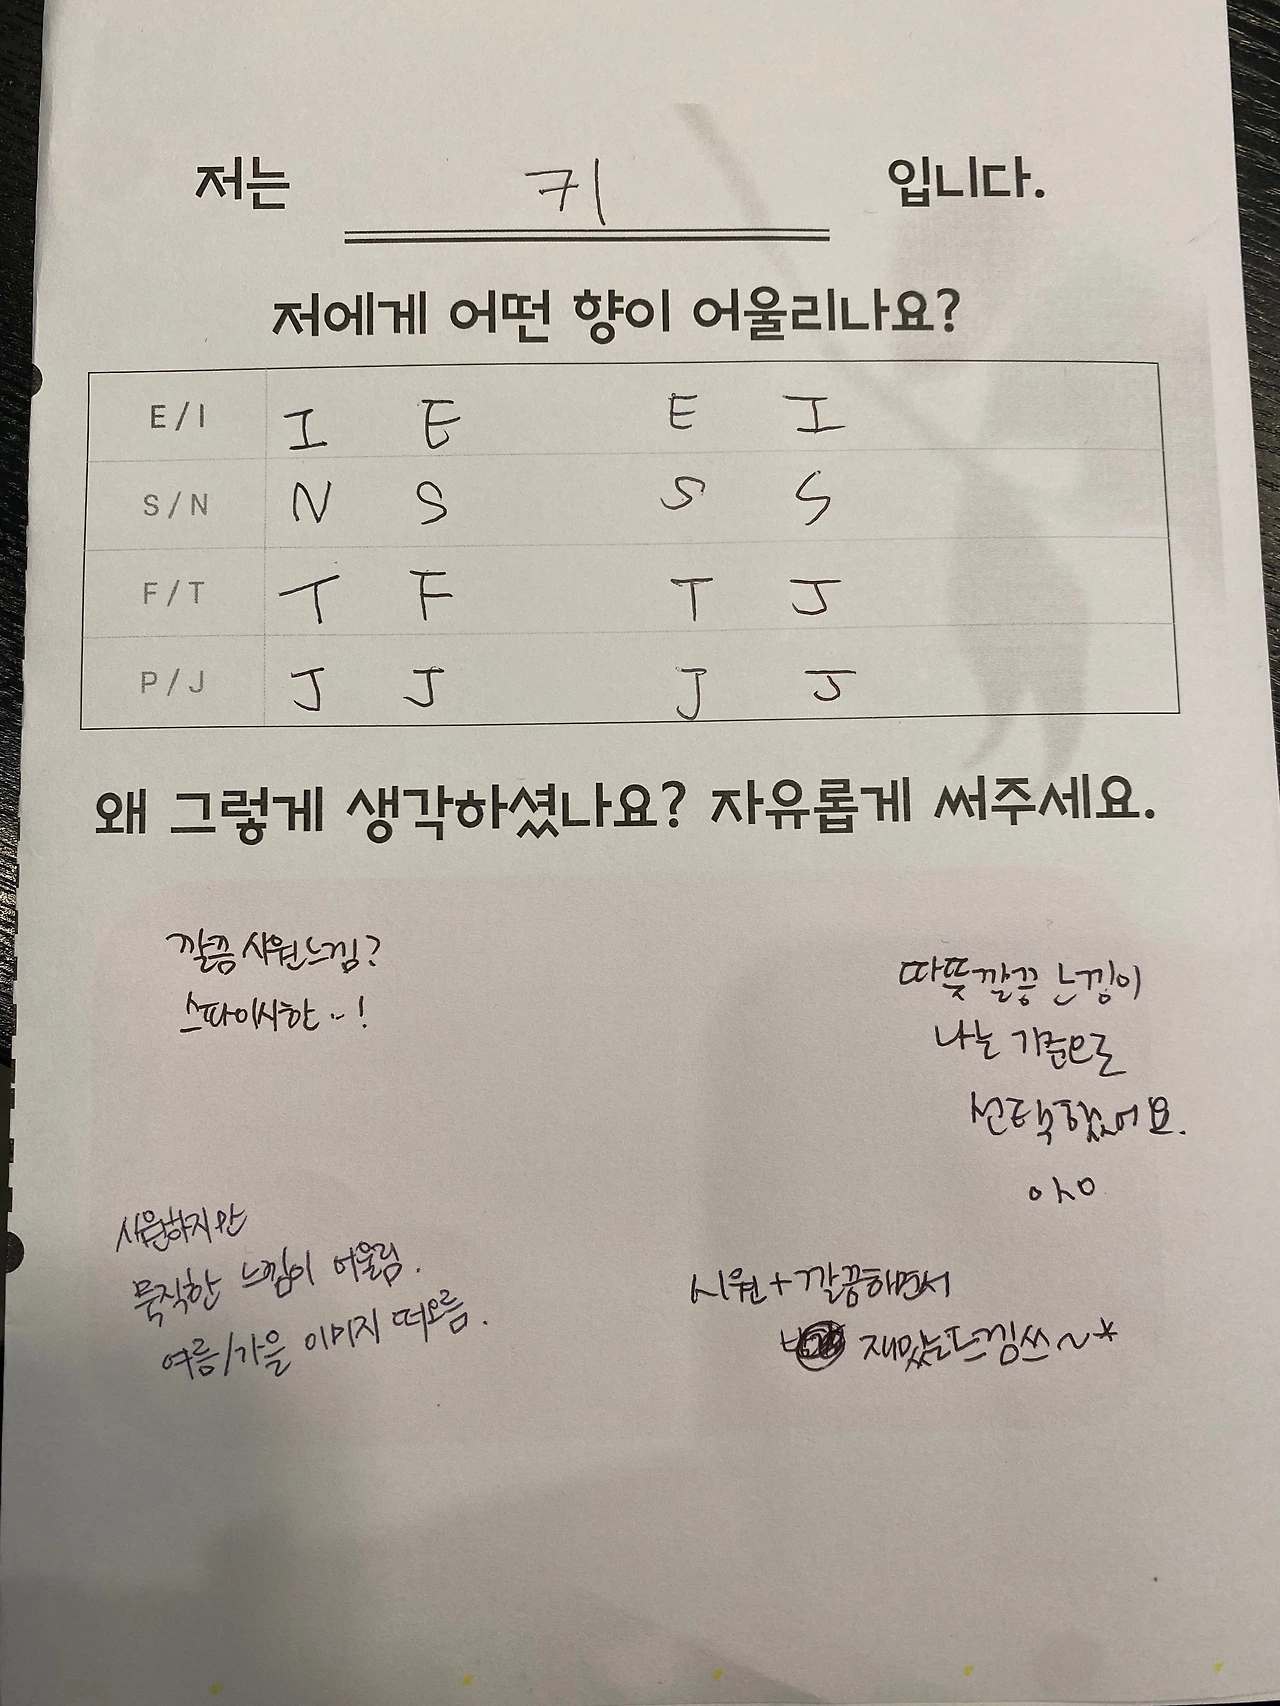 저는 귀 입니다.
저에게 어떤 향이 어울리나요?
E / I I E E I
S / N N S S S
F / T T F T J
P / J J J J J
왜 그렇게 생각하셨나요? 자유롭게 써주세요.
깔끔 시원느낌?
스파이시한..!
따뜻깔끔 느낌이
나는 기준으로
선택했어요.
시원하지만
묵직한 느낌이 어울림.
여름/가을 이미지 떠오름.
시원+깔끔하면서
재밌는느낌쓰~*